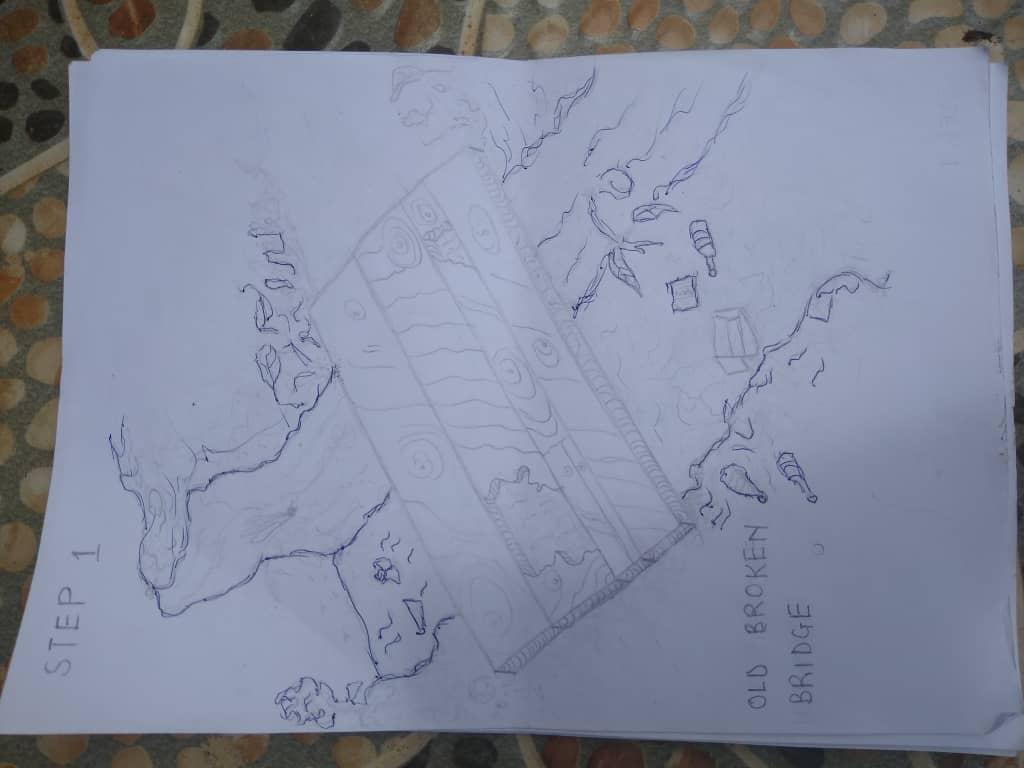 STEP 1
OLD BROKEN
BRIDGE